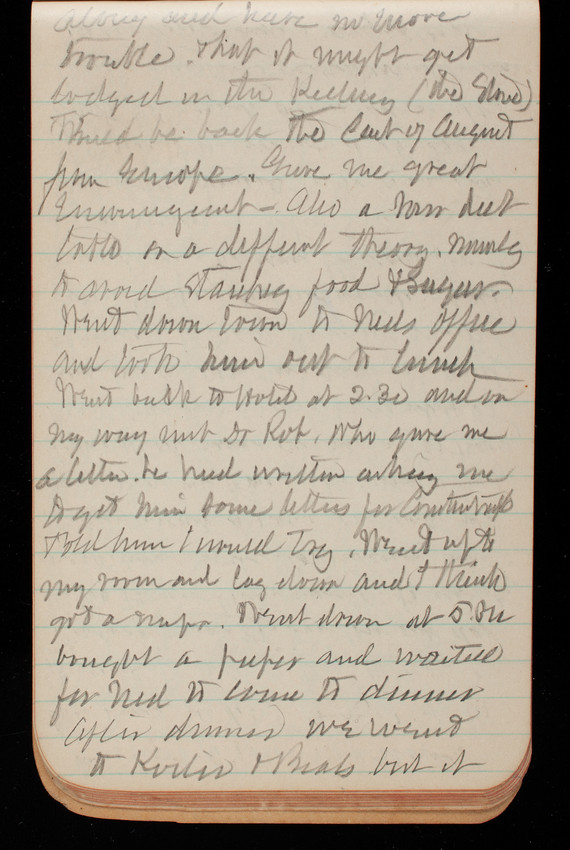 along and have no more
trouble. That it might get
lodged in the Kidney (the Stone)
would be back the last of August
from Europe. Gave me great
Encouragement - Also a new diet
table on a different theory. namely
to avoid starchy food & Sugar.
Went down town to Neds office
and took him out to lunch
Went back to Hotel at 2.30 and on
my way met Dr Rob. who gave me
a letter. he had written asking me
to get him some letters for
Told him I would try. Went up to
my room and lay down and I think
got a nap. Went down at 5.
bought a paper and waited
for Ned to come to dinner
After dinner we went
to Koster & Bials but it